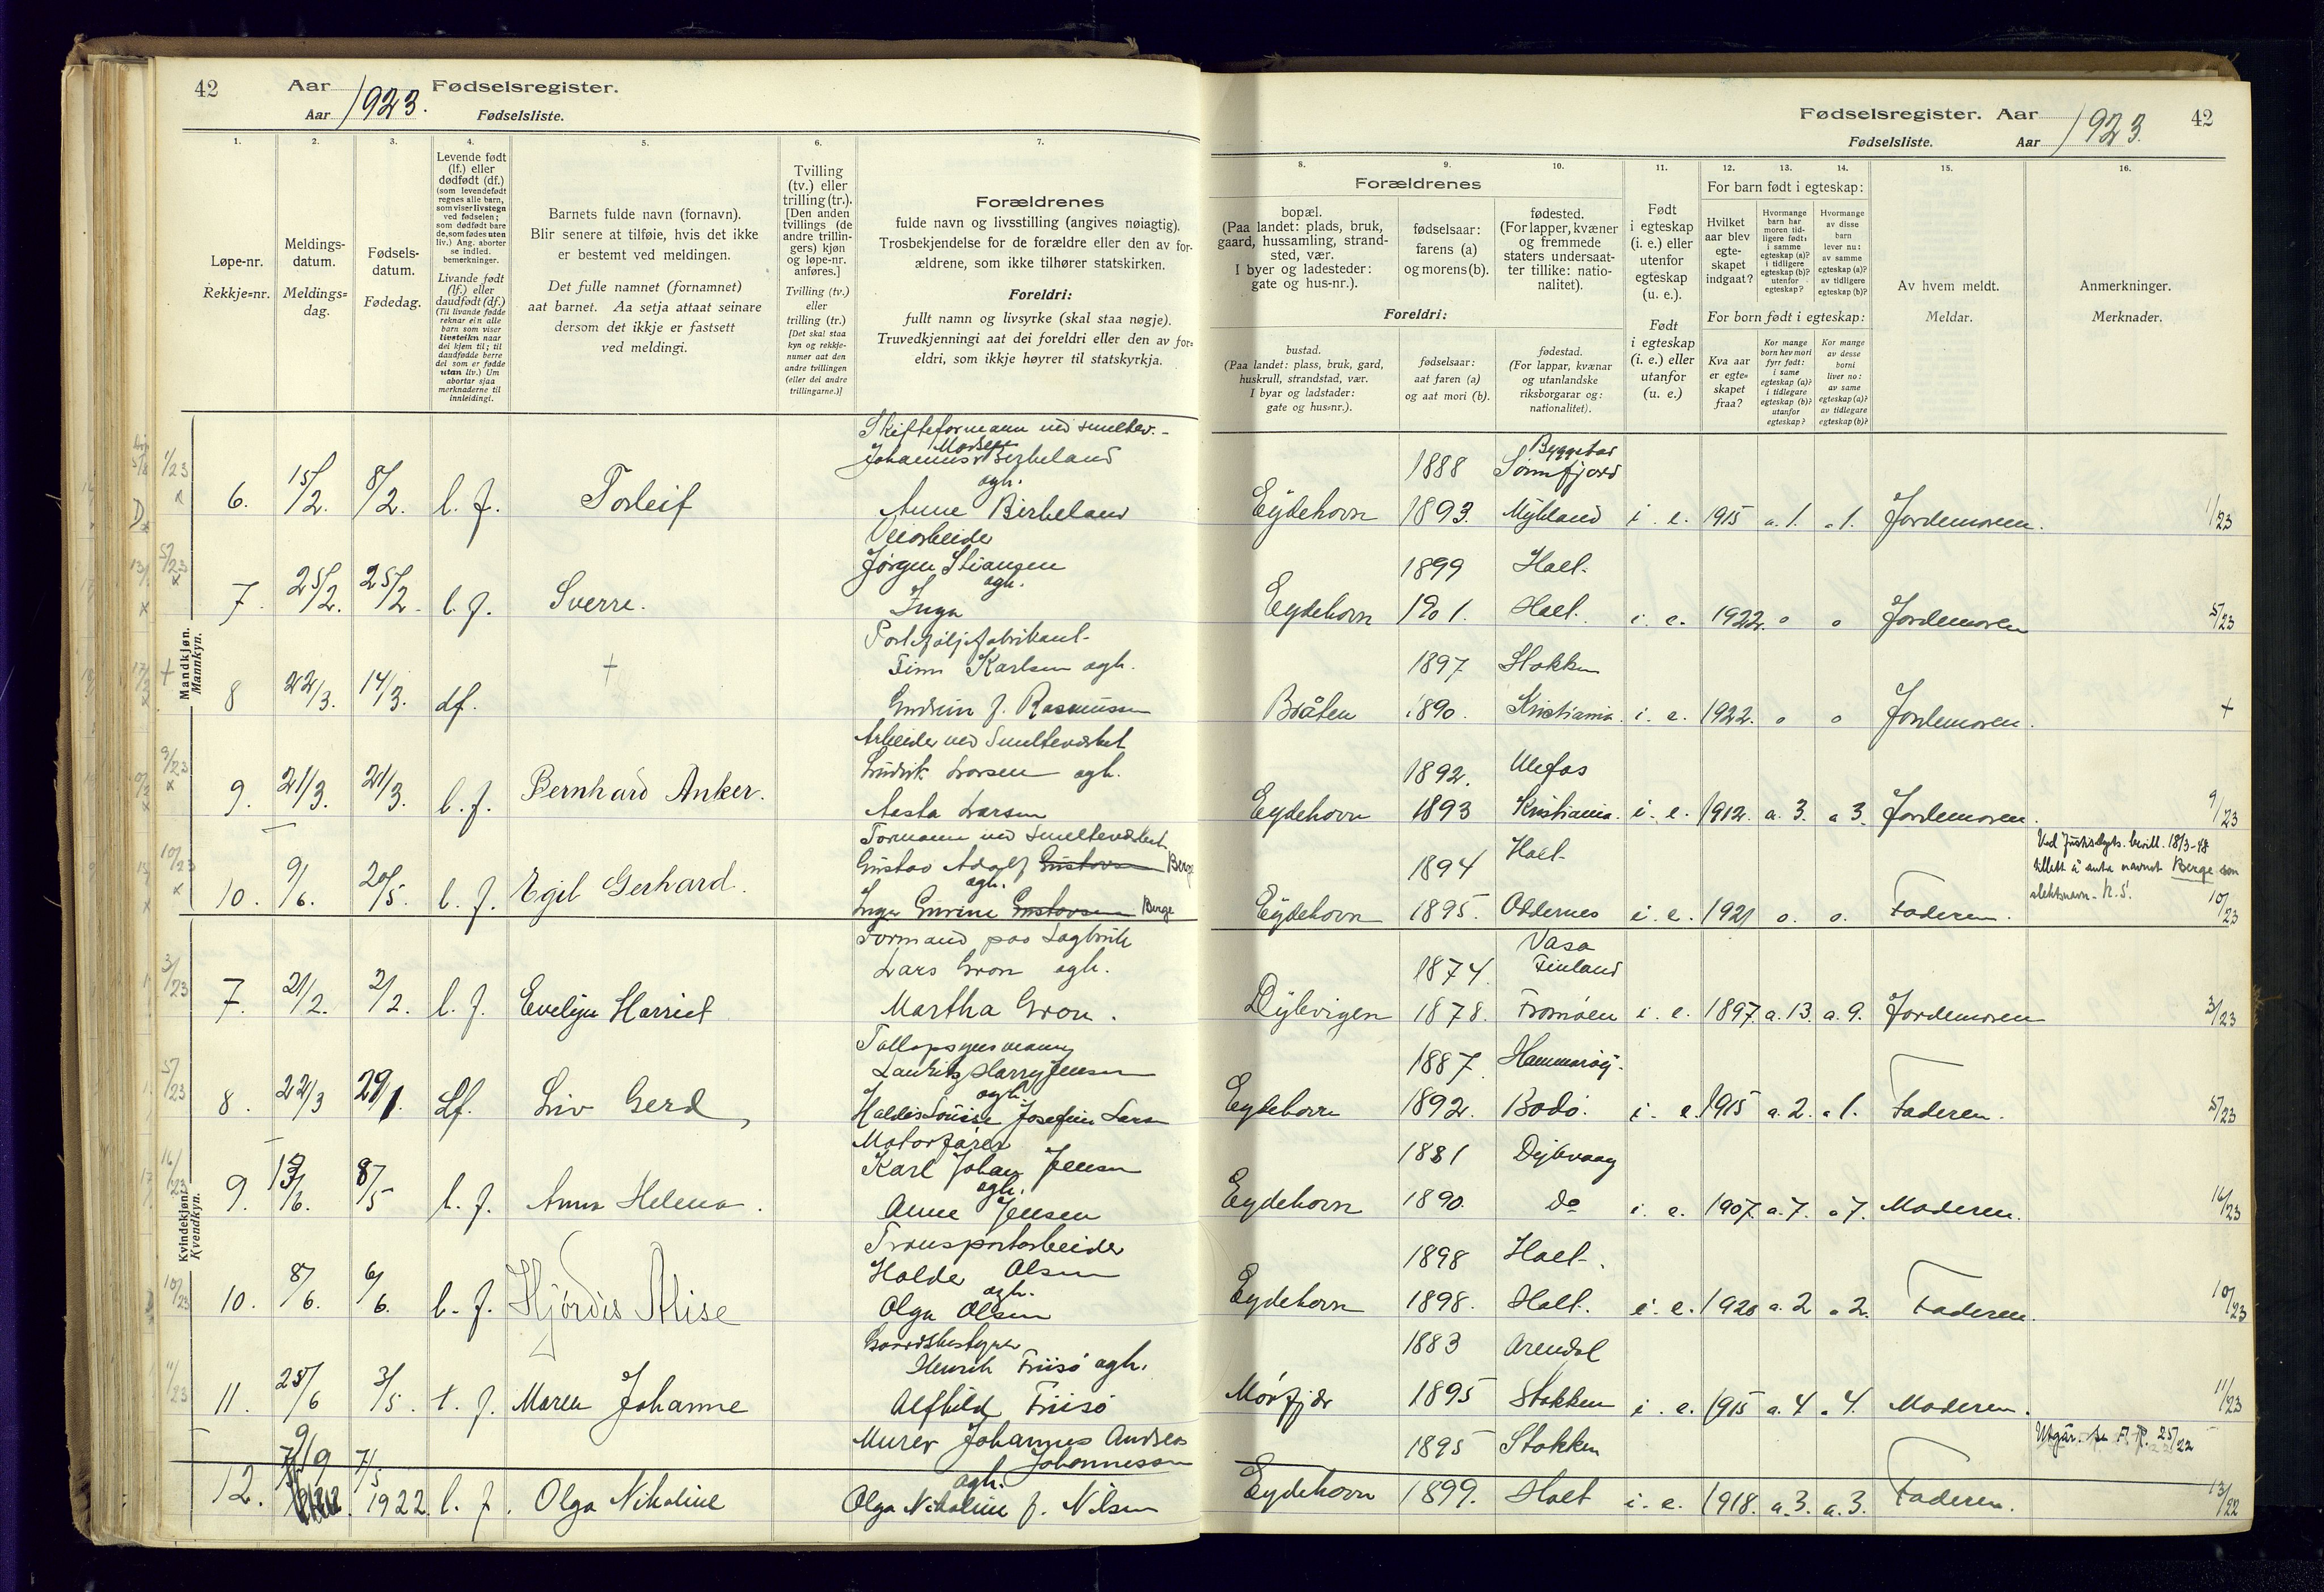 42 Aar 1923. Fødselsregister.
Aar Fødselsliste.
1. 2. 3. 4. 5. 6. 7.
Løpe-nr.
Rekkje=nr.
Meldings-
datum.
Meldings=
dag.
Fødsels-
datum.
Fødedag.
Levende født
(lf.) eller
dødfødt (df.)
(som levendefødt
regnes alle barn,
som viser livstegn
ved fødselen;
som dødfødt bare
de, som fødes uten
liv.) Ang. aborter
se indled.
bemerkninger.
Livande født
(lf.) eller
daudfødt (df.)
(Til livande fødde
reknar ein alle
barn som viser
livsteikn naar
dei kjem til; til
daudfødde berre
dei som er fødde
utan liv.) Um
abortar sjaa
merknaderne til
innleidingi.
Barnets fulde navn (fornavn).
Blir senere at tilføie, hvis det ikke
er bestemt ved meldingen.
Det fulle namnet (fornamnet)
aat barnet. Aa setja attaat seinare
dersom det ikkje er fastsett
ved meldingi.
Tvilling
(tv.) eller
trilling (tr.).
[Den anden
tvillings (de
andre trillin-
gers) kjøn
og løpe-nr.
anføres.]
Tvilling (tv.)
eller
trilling (tr.)
[Det skal staa
kyn og rekkje-
numer aat den
andre tvillingen
(eller dei andre
trillingarne.)]
Forældrenes
fulde navn og livsstilling (angives nøiagtig).
Trosbekjendelse for de forældre eller den av for-
ældrene, som ikke tilhører statskirken.
Foreldri:
fullt namn og livsyrke (skal staa nøgje).
Truvedkjenningi aat dei foreldri eller den av for=
eldri, som ikkje høyrer til statskyrkja.
Mandkjøn.
Mannkyn.
Skifteformann ved smeltev.-
Johannes Madsen Birkeland
ogh.
6. 15/2. 8/2. l. f. Torleif Anne Birkeland
Veiarbeider
Jørgen Stiansen
ogh.
7. 25/2. 25/2. l. f. Sverre. Inga
Finn Karlsen ogh.
8 22/3. 14/3. df. + Gudrun f. Rasmussen
Arbeider ved Smelteverket
Ludvik Larsen ogh.
9. 21/3. 21/3. l. f. Bernhard Anker. Aasta Larsen
Formann ved Smelteverket
Gustav Adolf Gustavsen Berge
ogh.
10. 9/6. 20/5. l. f. Egil Gerhard. Inga Gurine Gustavsen Berge
Kvindekjøn.
Kvendkyn.
Formand paa Sagbruk
Lars Gron ogh.
7. 21/2. 2/2. l. f. Evelyn Harriet Martha Gron.
Tallopsynsmann
Lauritz Harry Jensen
ogh.
8. 22/3 29/1. Lf. Liv Gerd Haldis Louise Josefine Larsen
Motorfører
Karl Johan Jensen
ogh.
9. 13/6. 8/5 l. f. Anna Helena. Anne Jensen
Transportarbeider
Halde Olsen
ogh.
10. 8/6. 6/6. l. f. Hjördis Alise Olga Olsen
Gaardsbestyrer
Henrik Friisø ogh.
11. 25/6 3/5. l. f. Maren Johanne Alfhild Friisø
Murer Johannes Andreas
Johannessen
ogh.
12. 7/5 1922 l. f. Olga Nikoline Olga Nikoline f. Nilsen
Fødselsregister. Aar 1923. 42
Fødselsliste. Aar
8. 9. 10. 11. 12. 13. 14. 15. 16.
Forældrenes
bopæl.
(Paa landet: plads, bruk,
gaard, hussamling, strand-
sted, vær.
I byer og ladesteder:
gate og hus-nr.).
fødselsaar:
farens (a)
og morens (b).
fødested.
(For lapper, kvæner
og fremmede
staters undersaat-
ter tillike: natio-
nalitet).
Foreldri:
bustad.
(Paa landet: plass, bruk, gard,
huskrull, strandstad, vær.
I byar og ladstader:
gate og hus=nr.).
fødselsaar:
aat faren (a)
og aat mori (b).
fødestad.
(For lappar, kvænar
og utanlandske
riksborgarar og:
nationalitet).
Født
i egteskap
(i. e.) eller
utenfor
egteskap
(u. e.).
Født
i egteskap
(i. e.) eller
utanfor
(u. e.)
For barn født i egteskap:
Hvilket
aar blev
egte-
skapet
indgaat?
Hvormange
barn har
moren tid-
ligere født:
i samme
egteskap (a)?
i tidligere
egteskap (b)?
utenfor
egteskap?
Hvormange
av disse
barn
lever nu:
av samme
egteskap (a)?
av tidligere
egteskap (b)?
For born født i egteskap:
Kva aar
er egte=
skapet
fraa?
Kor mange
born hev mori
fyrr født:
i same
egteskap (a)?
i tidlegare
egteskap (b)?
utanfor
egteskap?
Kor mange
av desse
borni
liver no:
av same
egteskap (a)?
av tidlegare
egteskap (b)?
Av hvem meldt.
Meldar.
Anmerkninger.
Merknader.
1888 Bygstad Sønnfjord
Eydehavn 1893. Mykland i. e. 1915 a. 1. a 1. Jordemoren. 1/23
1899 Holt.
Eydehavn 1901. Holt. i. e. 1922. o o Jordemoren 5/23
1897 Stokken
Bråten 1890. Kristiania. i. e. 1922. o o Jordemoren. +
1892. Ulefos
Eydehavn 1893 Kristiania. i. e. 1912. a. 3. a 3. Jordemoren. 9/23
Ved Justisdepts. bevill. 18/3-48
tillatt å anta navnet Berge som
slektsnavn. N.S.
1894 Holt
Eydehavn 1895. Oddernes i. e. 1921 o. o. Faderen. 10/23
1874. Vasa Finland
Dybvigen 1878. Tromøen i. e. 1897. a. 13. a. 9. Jordemoren 3/23
1887
Eydehavn 1892. Bodø. i. e. 1915 a. 2. a 1. Faderen. 5/23
1881 Dybvaag
Eydehavn 1890. Do i. e. 1907. a. 7. a 7. Moderen. 16/23
1898 Holt.
Eydehavn 1898. Holt. i. e. 1920 a. 2 a 2. Faderen. 10/23
1883 Arendal
Mørfjær 1895 Stokken i. e. 1915 a. 4 a 4. Moderen. 11/23
Utgår. Se F.R. 25/22
1895 Stokken
Eydehavn 1899. Holt i. e. 1918. a. 3. a. 3. Faderen. 13/22